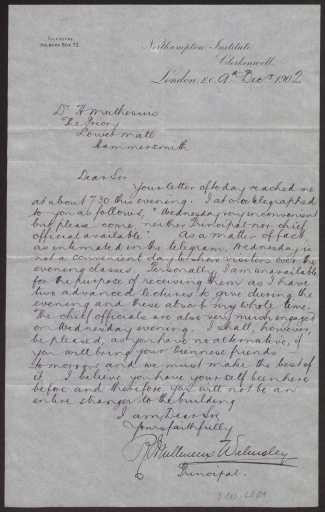 TELEPHONE
HOLBORN BOX 72.
Northampton Institute
Clerkenwell,
London, E.C. 9th Dec 1902
Dr H Muthesius
The Priory
Lower Mall
Hammersmith
Dear Sir
Your letter of today reached me
at about 7.30 this evening. I at once telegraphed
to you as follows, "Wednesday very inconvenient
but please come, neither Principal nor chief
officials available". As a matter of fact
as intimated in the telegram, Wednesday is
not a convenient day to show visitors over the
evening classes. Personally, I am unavailable
for the purpose of receiving them as I have
two advanced lectures to give during the
evening and these absorb my whole time.
The chief officials are also very much engaged
on Wednesday evening. I shall, however,
be pleased, as you have no alternative, if
you will bring your Viennese friends
tomorrow and we must make the best of
it. I believe you have yourself been here
before and therefore you will not be an
entire stranger to the building
I am Dear Sir
Yours faithfully
R Mullineux Walmsley
Principal.